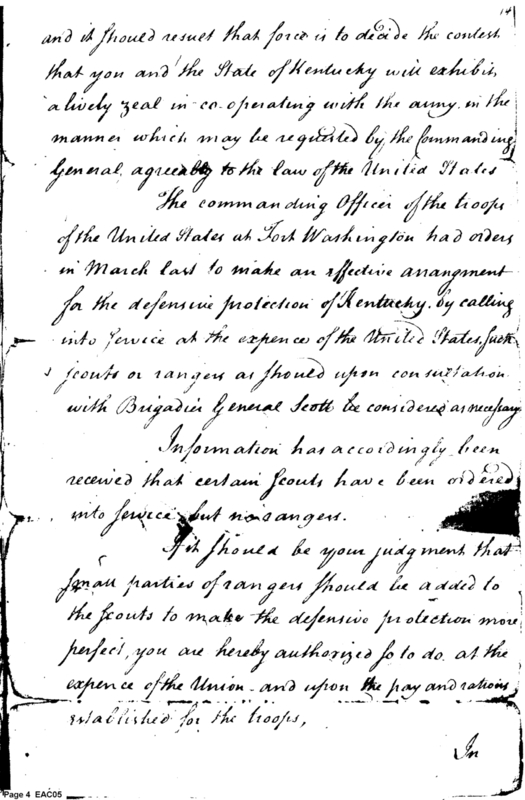 14
and it should result that force is to decide the contest
that you and the State of Kentucky will exhibit
a lively zeal in co-operating with the army in the
manner which may be requested by the Commanding
General agreeably to the law of the United States
The commanding Officer of the troops
of the United States at Fort Washington had orders
in March last to make an effective arrangment
for the defensive protection of Kentucky by calling
into service at the expence of the United States, such
scouts or rangers as should upon consultation
with Brigadier General Scott be considered as necessary
Information has accordingly been
received that certain scouts have been ordered
into service but no rangers.
If it should be your judgment that
small parties of rangers should be added to
the scouts to make the defensive protection more
perfect, you are hereby authorized so to do at the
expence of the Union - and upon the pay and rations
established for the troops,
In
Page 4 EAC05